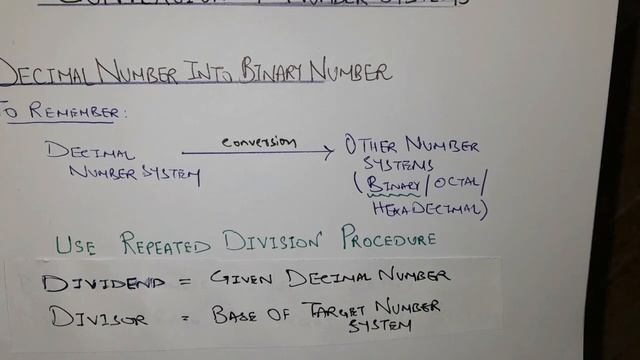 NUMBER SYSTEMS
DECIMAL NUMBER INTO BINARY NUMBER
TO REMEMBER:
DECIMAL NUMBER SYSTEM
conversion
OTHER NUMBER
SYSTEMS
(BINARY/OCTAL/
HEXADECIMAL)
USE REPEATED DIVISION PROCEDURE
DIVIDEND = GIVEN DECIMAL NUMBER
DIVISOR = BASE OF TARGET NUMBER
SYSTEM